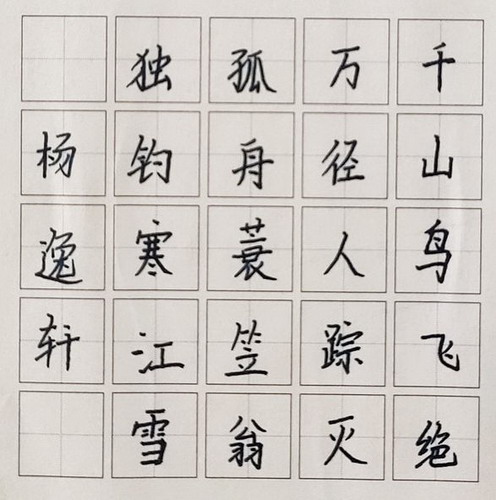 千山鸟飞绝
万径人踪灭
孤舟蓑笠翁
独钓寒江雪
杨逸轩